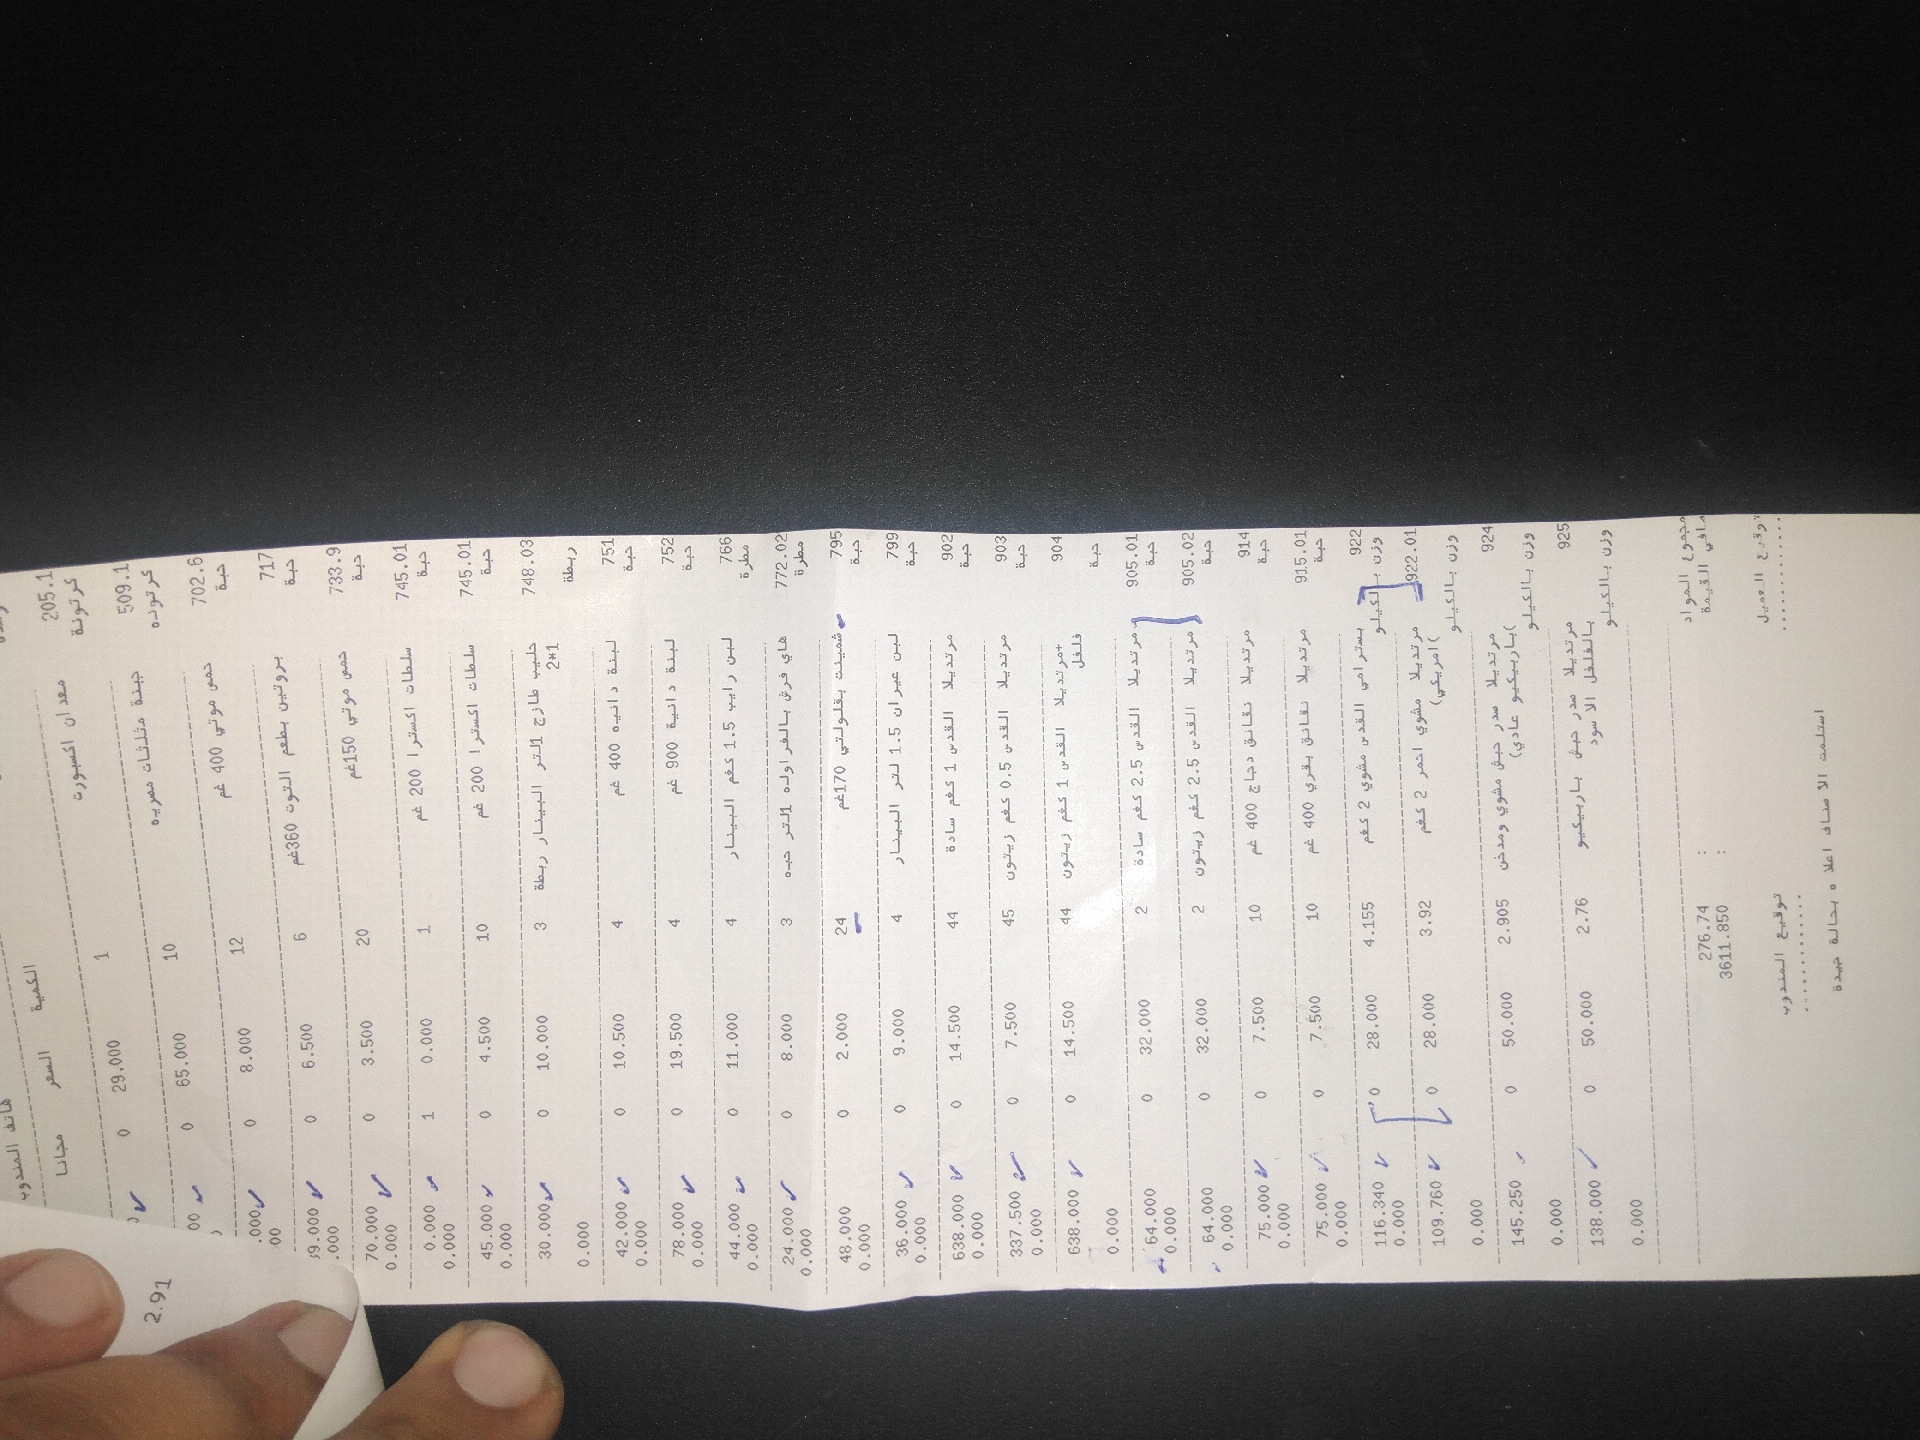 هاتف المندوب
مجانا السعر الكمية
205.1 معدان اكسبورت 1 29.000 0
كرتونة
509.1 جبنة مثلثات مصريه 10 65.000 0 00
كرتونه
702.6 حمص موتي 400 غم 12 8.000 0 .000
حبة 00
717 بروتين بطعم التوت 360غم 6 6.500 0 39.000
حبة .000
733.9 حمص موتي 150غم 20 3.500 0 70.000
حبة 0.000
745.01 سلطات اكسترا 200 غم 1 0.000 1 0.000
حبة 0.000
745.01 سلطات اكسترا 200 غم 10 4.500 0 45.000
حبة 0.000
748.03 حليب طازج 1لتر البينار ربطة 3 10.000 0 30.000
2*1
ربطة 0.000
751 لبنة دانيه 400 غم 4 10.500 0 42.000
حبة 0.000
752 لبنة دانية 900 غم 4 19.500 0 78.000
حبة 0.000
766 لبن رايب 1.5 كغم البينار 4 11.000 0 44.000
مطرة 0.000
772.02 هاي فرش بالفراوله 1لتر حبه 3 8.000 0 24.000
مطرة 0.000
795 شمينت بقلولتي 170غم 24 2.000 0 48.000
حبة 0.000
799 لبن عيران 1.5 لتر البينار 4 9.000 0 36.000
حبة 0.000
902 مرتديلا القدس 1 كغم سادة 44 14.500 0 638.000
حبة 0.000
903 مرتديلا القدس 0.5 كغم زيتون 45 7.500 0 337.500
حبة 0.000
904 مرتديلا القدس 1 كغم زيتون+ 44 14.500 0 638.000
فلفل
حبة 0.000
905.01 مرتديلا القدس 2.5 كغم سادة 2 32.000 0 64.000
حبة 0.000
905.02 مرتديلا القدس 2.5 كغم زيتون 2 32.000 0 64.000
حبة 0.000
914 مرتديلا نقانق دجاج 400 غم 10 7.500 0 75.000
حبة 0.000
915.01 مرتديلا نقانق بقري 400 غم 10 7.500 0 75.000
حبة 0.000
922 بسترامي القدس مشوي 2 كغم 4.155 28.000 0 116.340
وزن بالكيلو 0.000
922.01 مرتديلا مشوي احمر 2 كغم 3.92 28.000 0 109.760
(امريكي)
وزن بالكيلو 0.000
924 مرتديلا صدر حبش مشوي ومدخن 2.905 50.000 0 145.250
(باربيكيو عادي)
وزن بالكيلو 0.000
925 مرتديلا صدر حبش باربيكيو 2.76 50.000 0 138.000
بالفلفل الاسود
وزن بالكيلو 0.000
مجموع المواد : 276.74
صافي القيمة : 3611.850
توقيع العميل توقيع المندوب
............ ............
استلمت الاصناف اعلاه بحالة جيدة
2.91